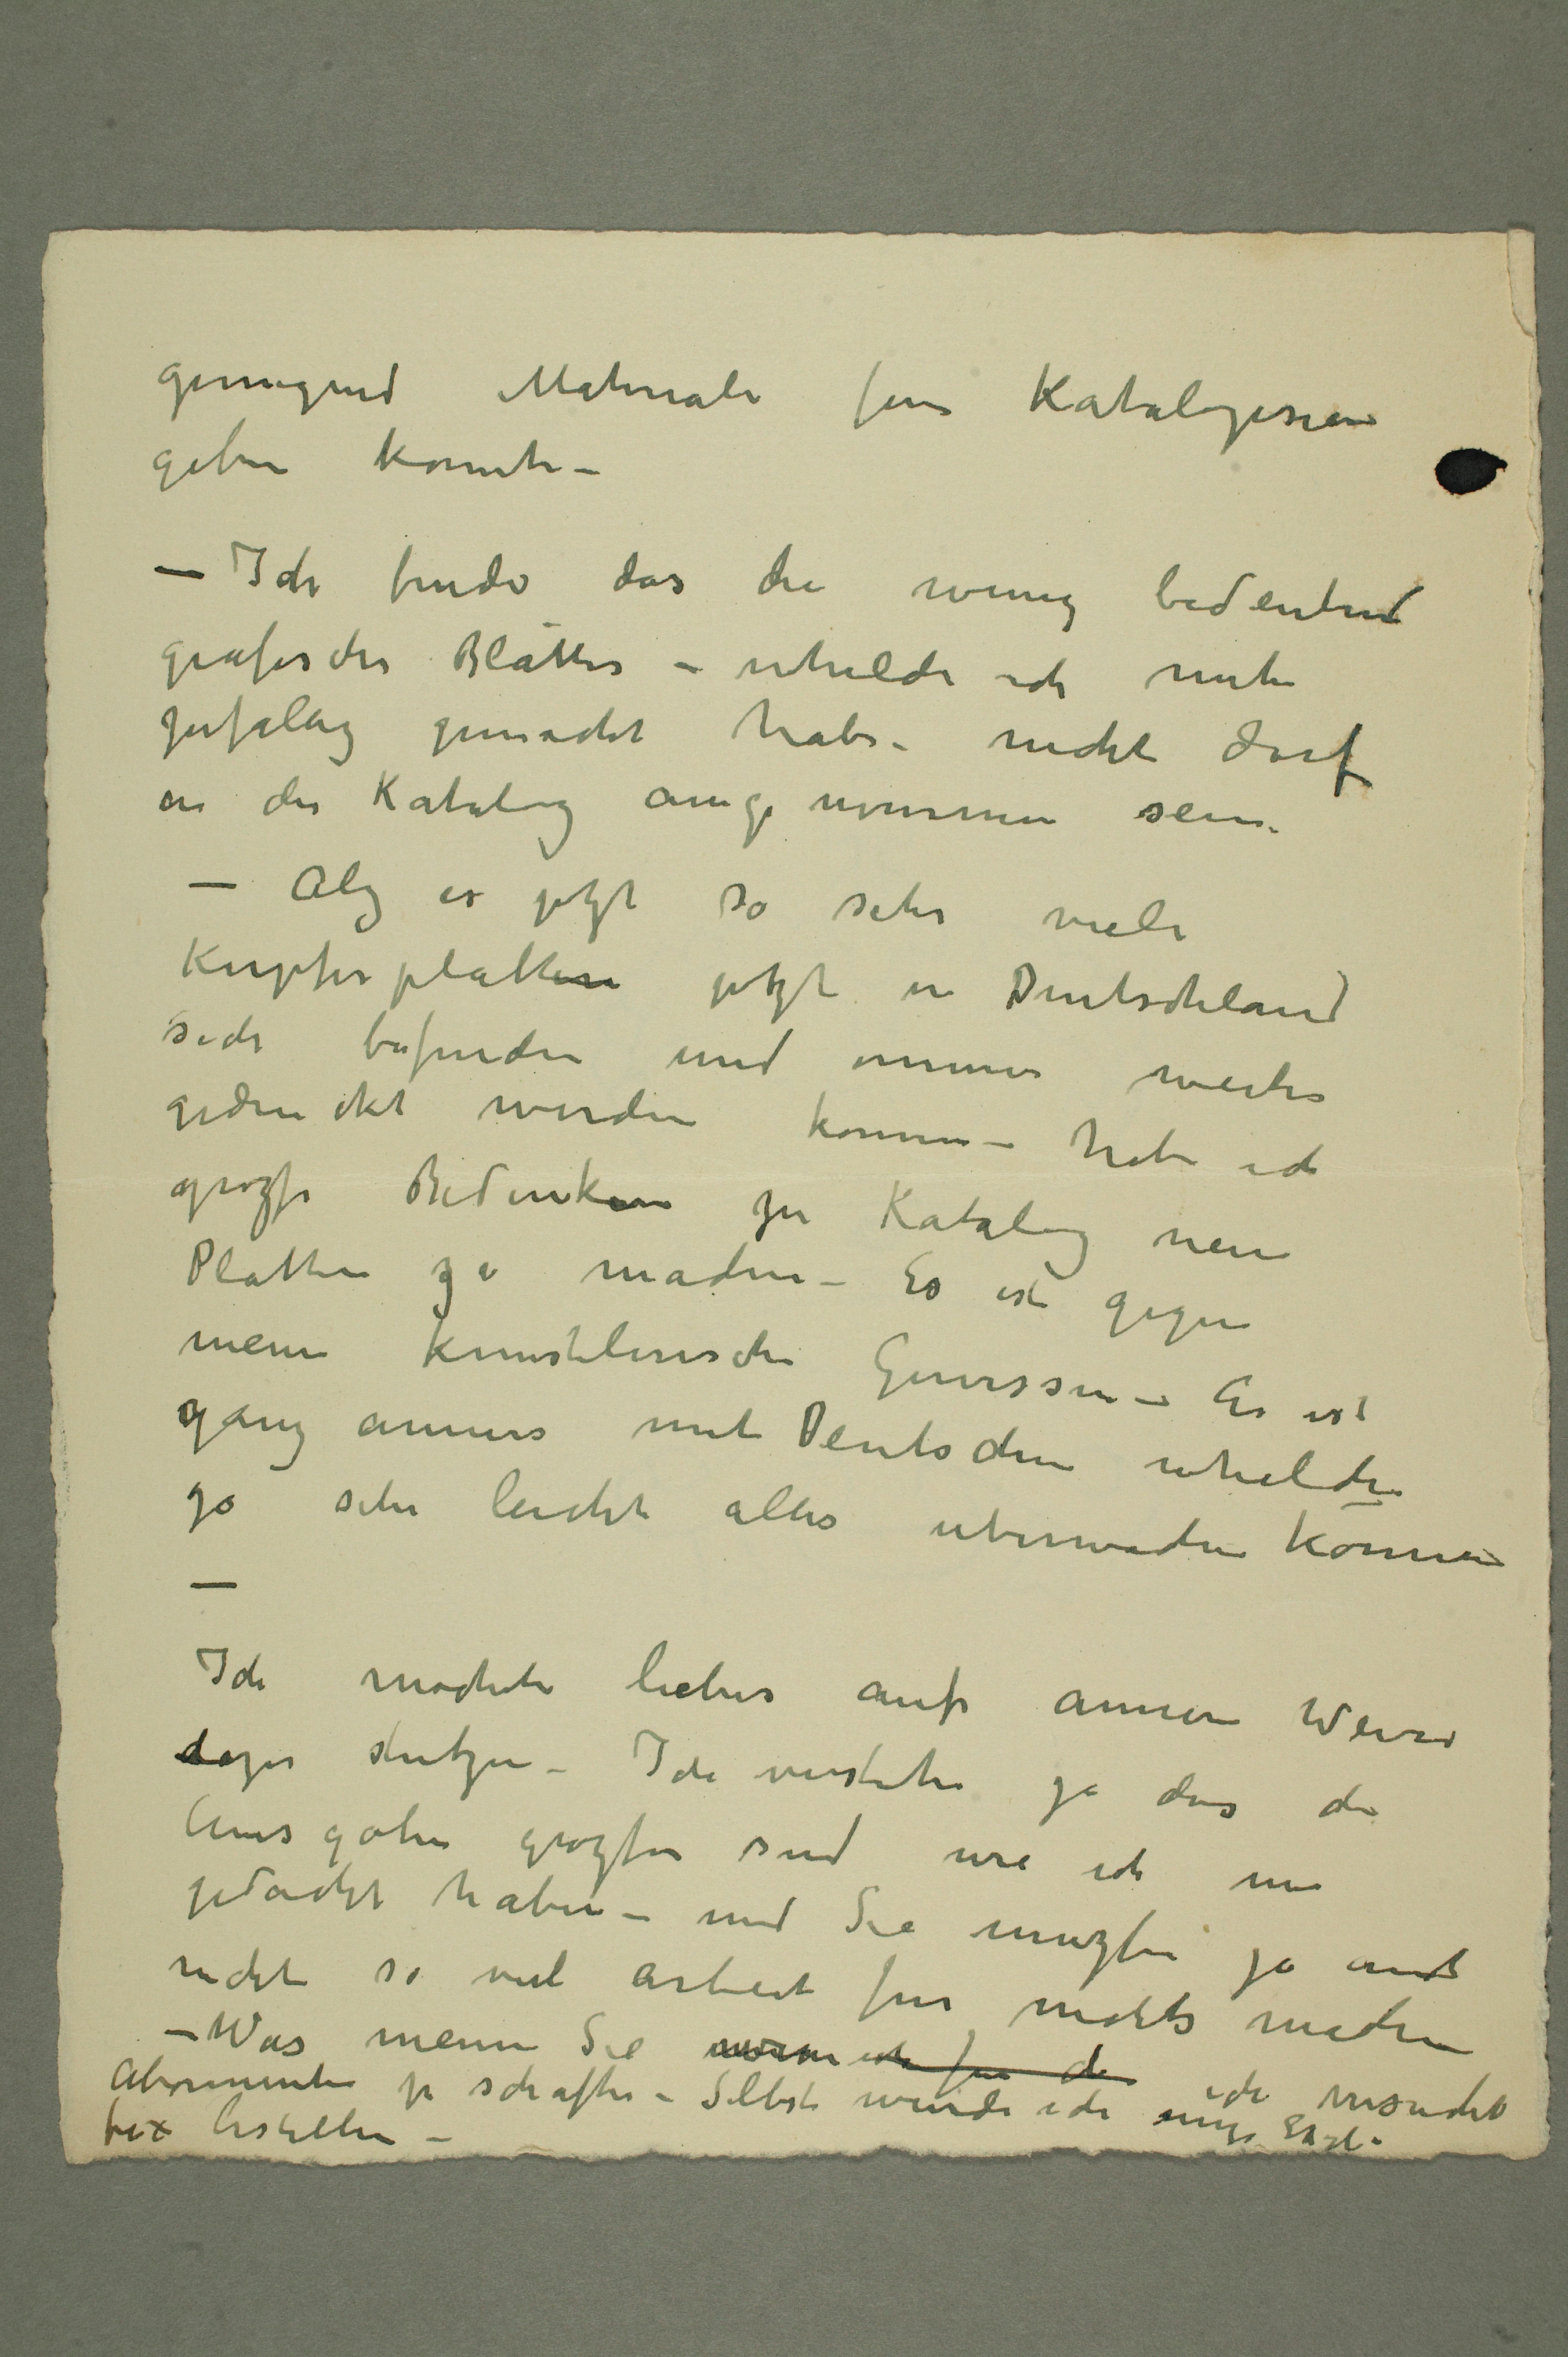 genugend Materiale fur Katalogisieren
geben konnte –
– Ich finde das die wenig bedeutend
grafische Blätter – whelche ich mehr
zufälig gemacht habe – nicht darf
in der Katalog aufgenommen sein.
– Als es jetzt so sehr viele
Kupferplatten jetzt in Deutschland
sich befinden und immer weiter
gedruckt werden konnen – habe ich
grozse Bedenken zu Katalog neue
Platten zu machen – Es ist gegen
meine kunstlerische Gewissen – Es ist
ganz anners mit Deutschen whelche
ja sehr leicht alles uberwachen können
–
Ich mochte lieber auf annere Weise
dazu stutzen – Ich verstehe ja das die
Ausgaben grozser sind wie ich mir
gedacht haben – und Sie muzsen ja auch
nicht so viel arbeit fur nichts machen
– Was meinen Sie wenn ich fur die ich versuchte
Abonnenten zu schaffen – Selbst wurde ich einige Expl.
fix bestellen –